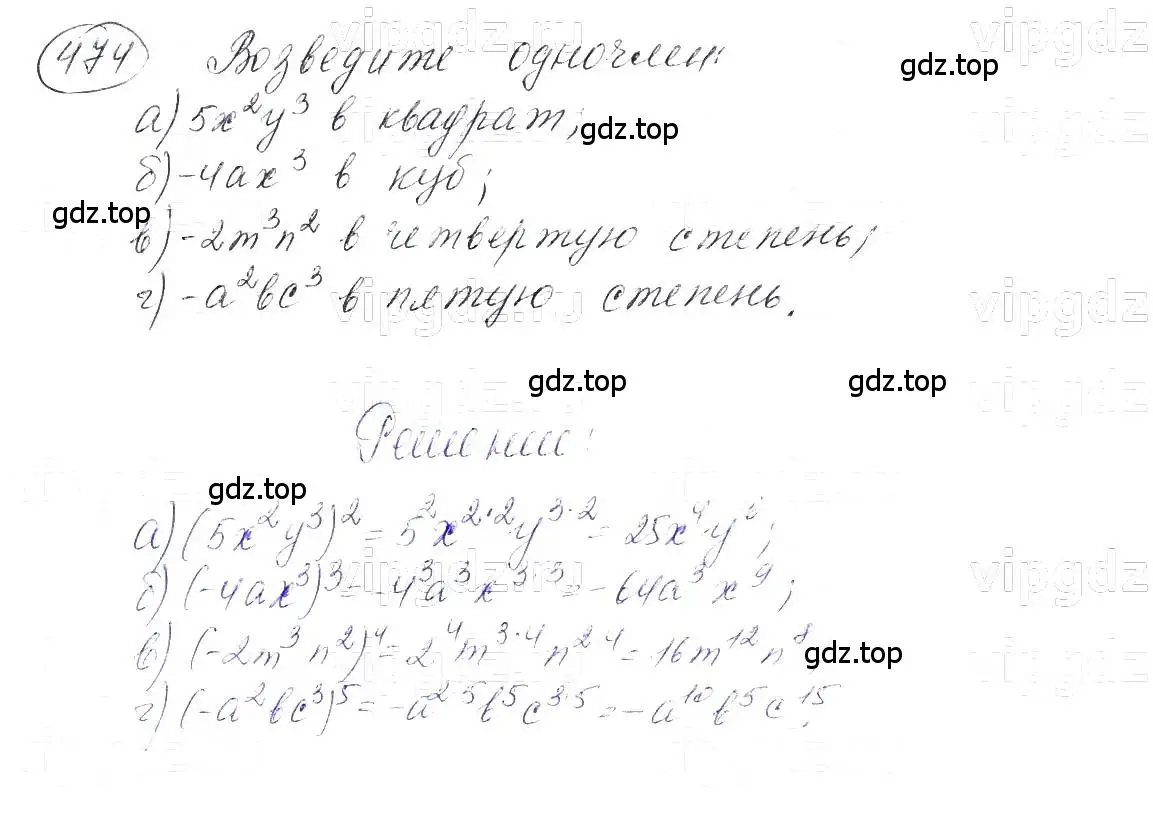 474 Возведите одночлен:
а) 5x²y³ в квадрат;
gdz.top
gdz.top
б) -4ax³ в куб;
gdz.top
в) -2m³n² в четвертую степень;
г) -a²bc³ в пятую степень.
gdz.top
gdz.top
Решение:
gdz.top
а) (5x²y³)² = 5²x²·²y³·² = 25x⁴y⁶;
б) (-4ax³)³ = -4³a³x³·³ = -64a³x⁹;
в) (-2m³n²)⁴ = 2⁴m³·⁴n²·⁴ = 16m¹²n⁸
gdz.top
г) (-a²bc³)⁵ = -a²·⁵b⁵c³·⁵ = -a¹⁰b⁵c¹⁵.
vipgdz.ru
vipgdz